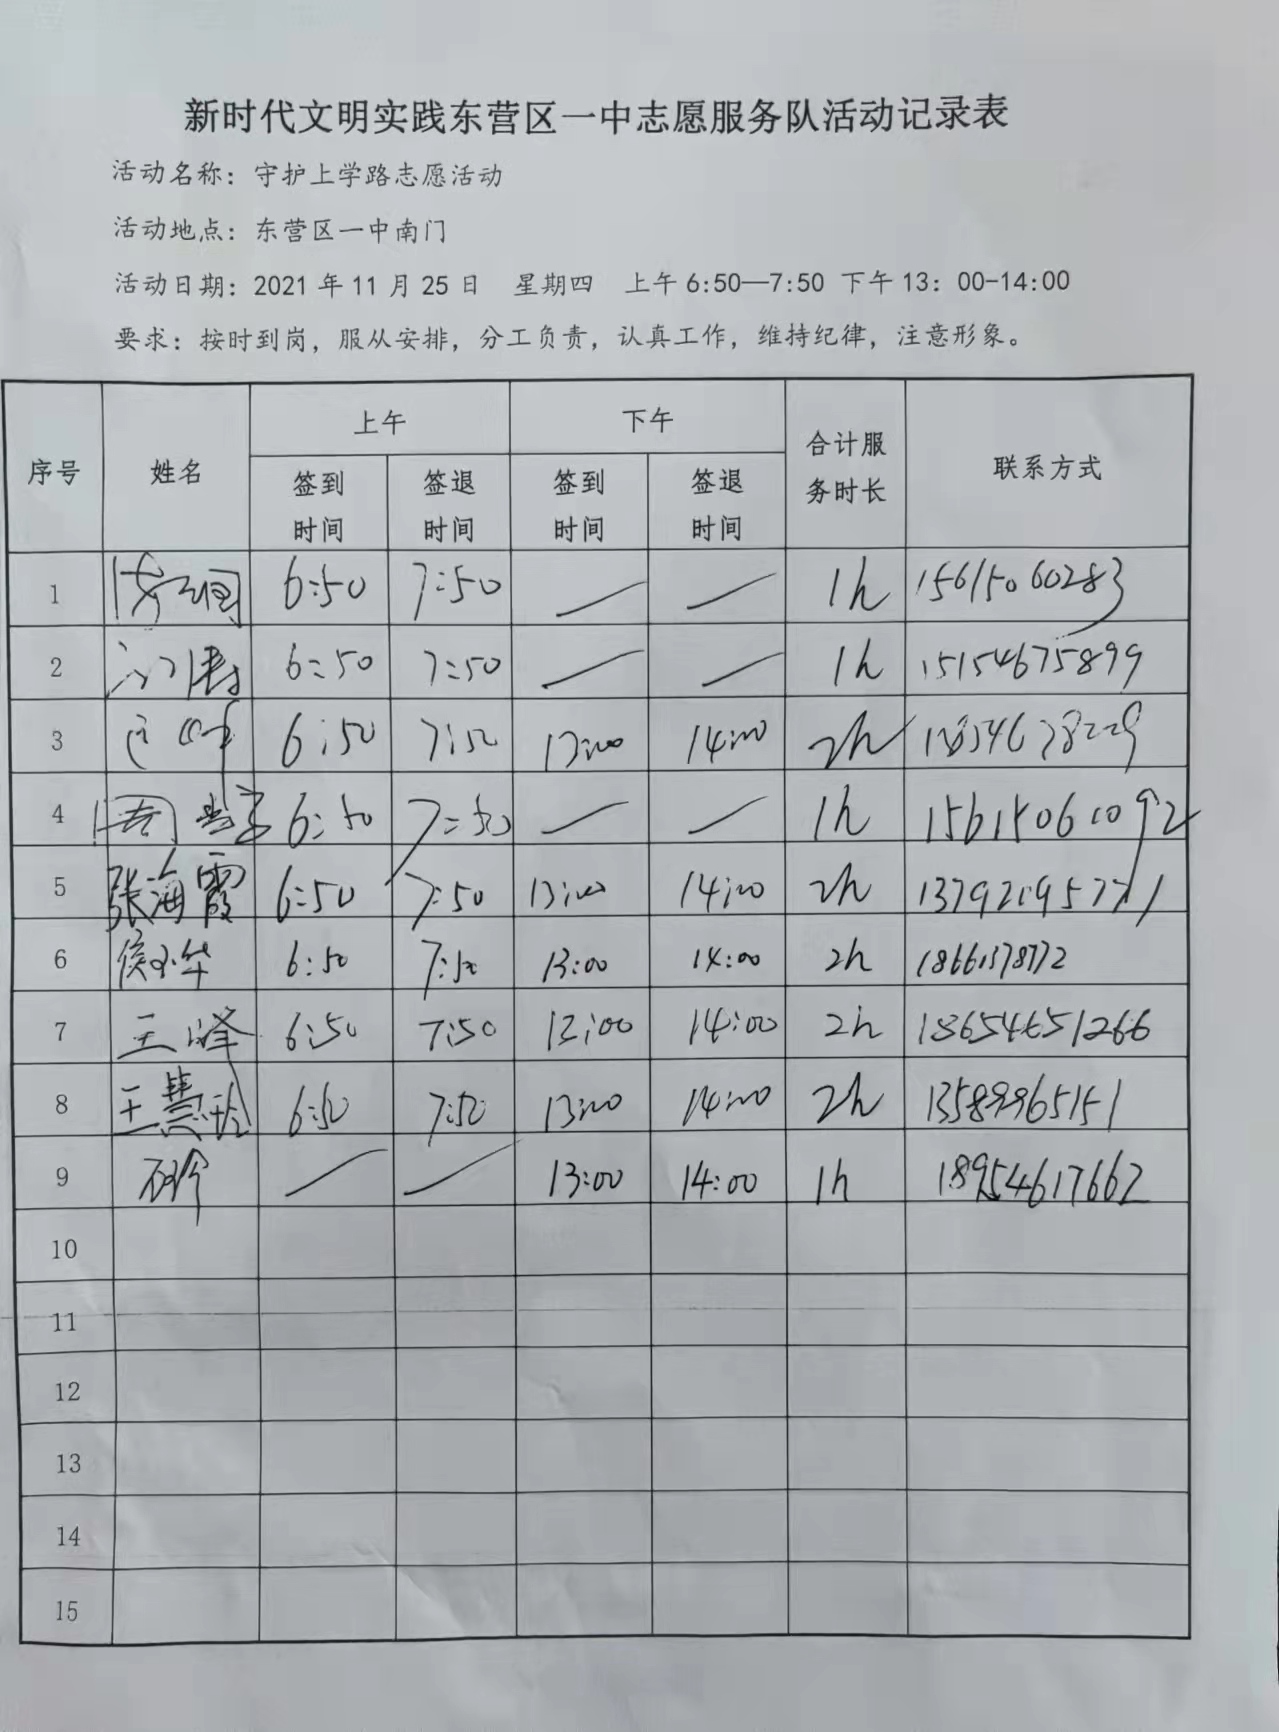 新时代文明实践东营区一中志愿服务队活动记录表
活动名称：守护上学路志愿活动
活动地点：东营区一中南门
活动日期：2021年11月25日 星期四 上午6:50—7:50 下午13：00-14:00
要求：按时到岗，服从安排，分工负责，认真工作，维持纪律，注意形象。
序号 姓名 上午 下午 合计服务时长 联系方式
签到时间 签退时间 签到时间 签退时间
1 6:50 7:50 — — 1h 15615060283
2 6:50 7:50 — — 1h 15154675899
3 6:50 7:50 13:00 14:00 2h
4 6:50 7:50 — — 1h 15615061092
5 张海霞 6:50 7:50 13:00 14:00 2h 13792195771
6 6:50 7:50 13:00 14:00 2h
7 王峰 6:50 7:50 12:00 14:00 2h 18654651266
8 王慧玲 6:50 7:50 13:00 14:00 2h 13589965151
9 — — 13:00 14:00 1h 18954617662
10
11
12
13
14
15